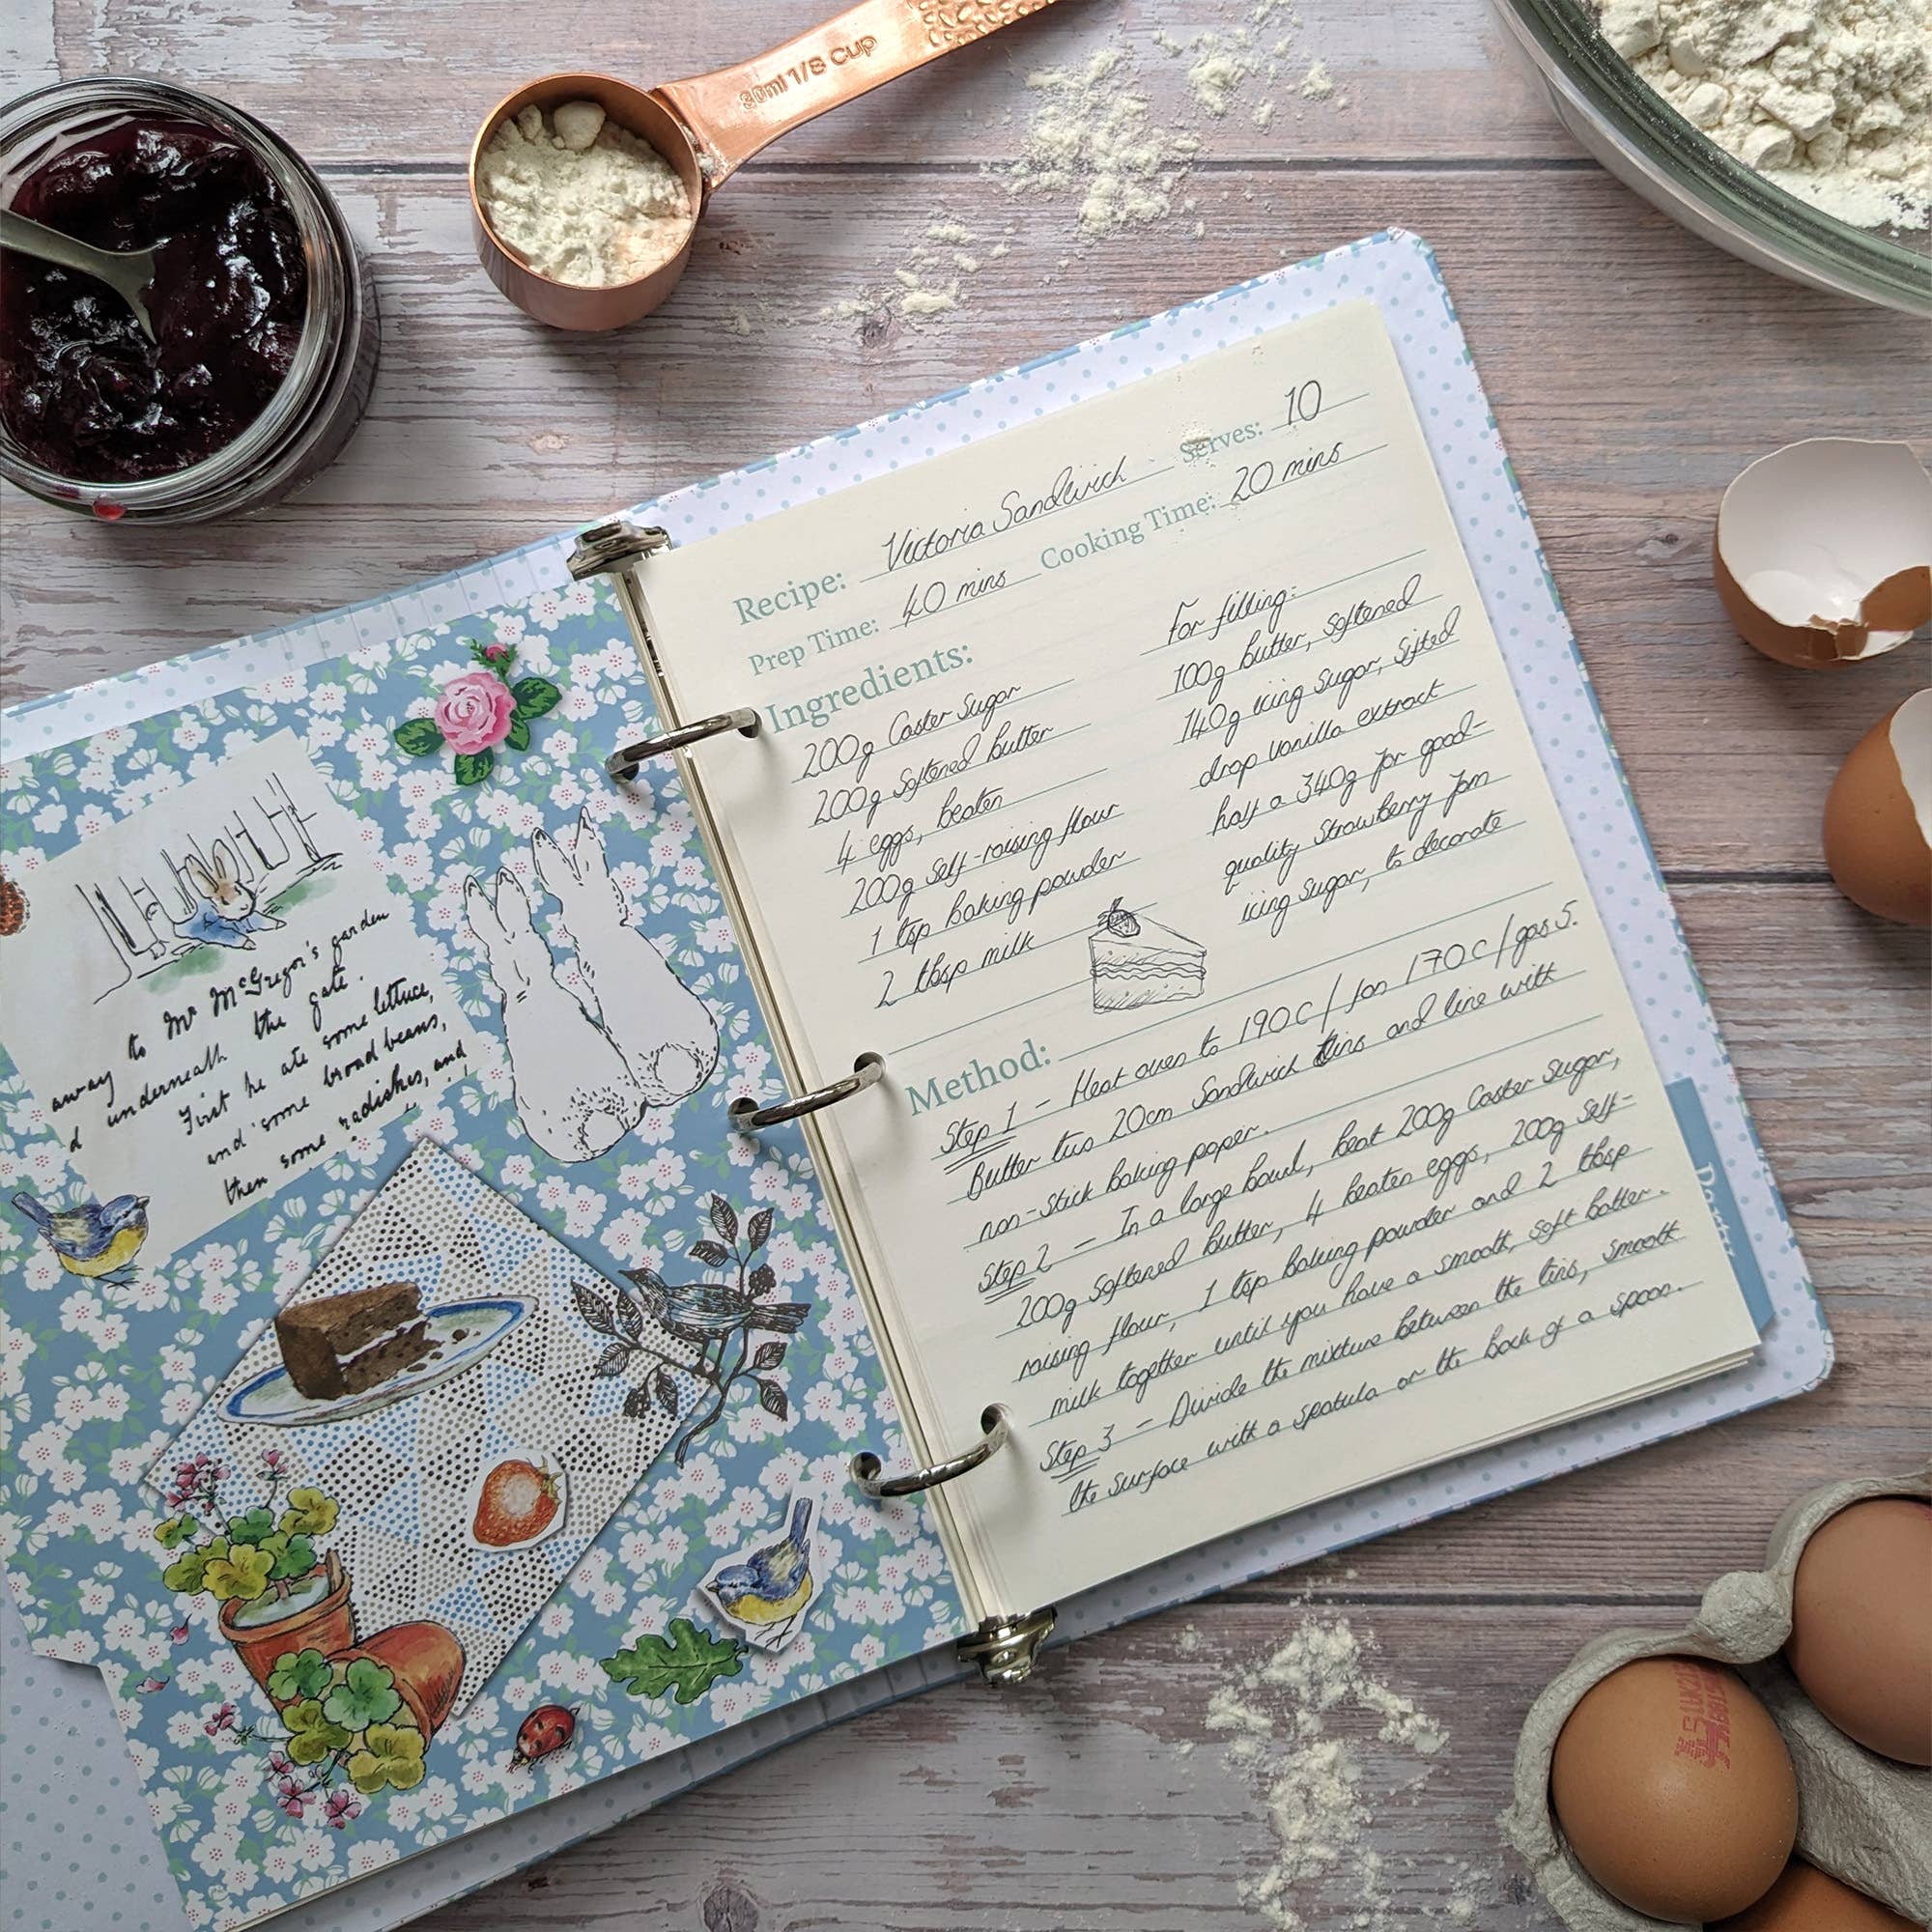 30ml 1/8 Cup
to Mr McGregor's garden
away underneath the gate.
d First he ate some lettuce,
and some broad beans,
then some radishes, and
Recipe: Victoria Sandwich Serves: 10
Prep Time: 40 mins Cooking Time: 20 mins
Ingredients:
200g Caster Sugar
200g Softened butter
4 eggs, beaten
200g Self-raising flour
1 tsp baking powder
2 tbsp milk
For filling:
100g butter, softened
140g icing sugar, sifted
drop vanilla extract
half a 340g jar good-
quality strawberry jam
icing sugar, to decorate
Method:
Step 1 - Heat oven to 190C / fan 170C / gas 5.
Butter two 20cm Sandwich tins and line with
non-stick baking paper.
Step 2 - In a large bowl, beat 200g Caster Sugar,
200g Softened butter, 4 beaten eggs, 200g Self-
raising flour, 1 tsp baking powder and 2 tbsp
milk together until you have a smooth, soft batter.
Step 3 - Divide the mixture between the tins, smooth
the surface with a spatula or the back of a spoon.